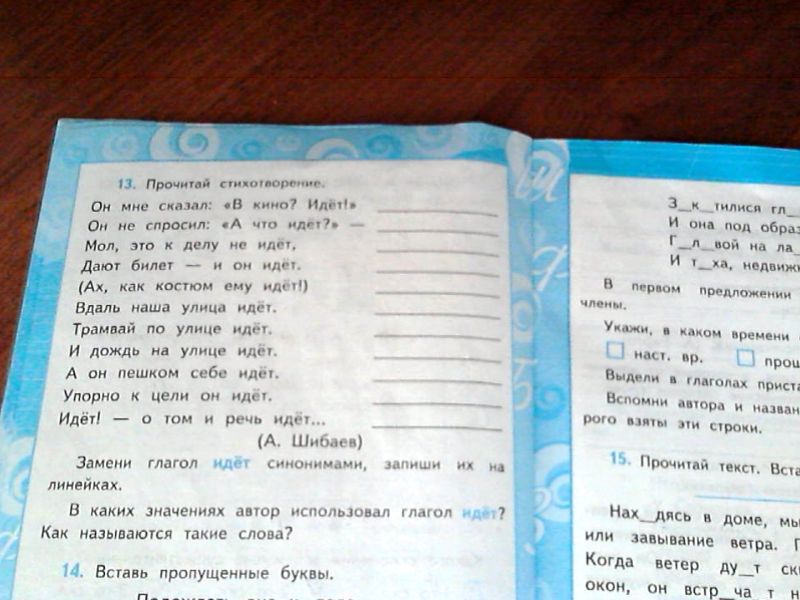 13. Прочитай стихотворение.
Он мне сказал: «В кино? Идёт!»
Он не спросил: «А что идёт?» —
Мол, это к делу не идёт,
Дают билет — и он идёт.
(Ах, как костюм ему идёт!)
Вдаль наша улица идёт.
Трамвай по улице идёт.
И дождь на улице идёт.
А он пешком себе идёт.
Упорно к цели он идёт.
Идёт! — о том и речь идёт...
(А. Шибаев)
Замени глагол идёт синонимами, запиши их на
линейках.
В каких значениях автор использовал глагол идёт?
Как называются такие слова?
14. Вставь пропущенные буквы.
З__к__тилися гл__
И она под образ
Г__л__вой на ла
И т__ха, недвижи
В первом предложении
члены.
Укажи, в каком времени
наст. вр. прош
Выдели в глаголах прист
Вспомни автора и назван
рого взяты эти строки.
15. Прочитай текст. Вста
Нах__дясь в доме, мы
или завывание ветра.
Когда ветер ду__т ск
окон, он встр__ча__т н